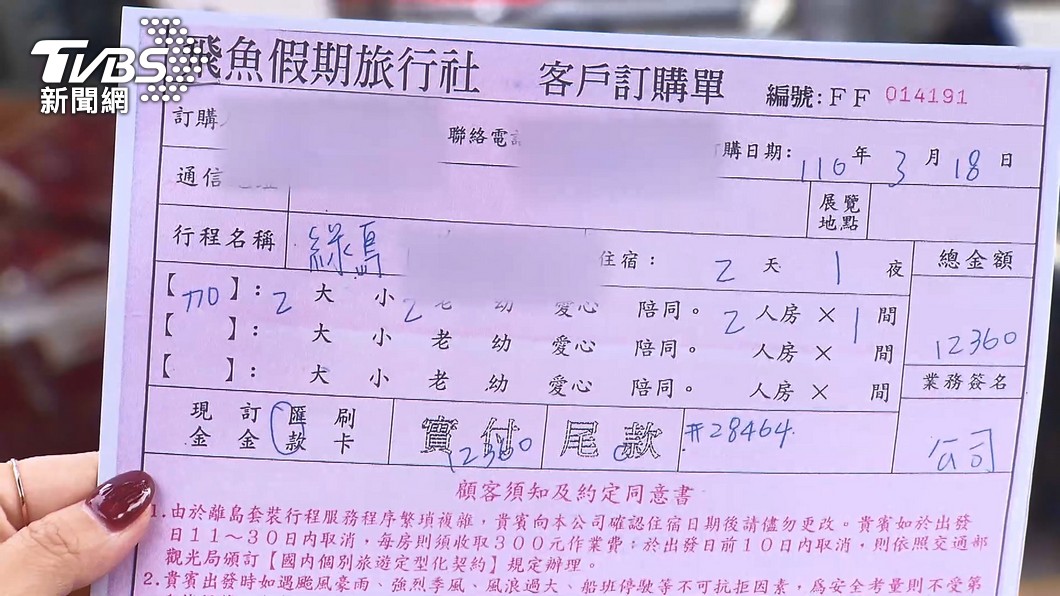 TVBS
新聞網
飛魚假期旅行社 客戶訂購單 編號:FF 014191
訂購 聯絡電 訂購日期: 110年3月18日
通信 展覽地點
行程名稱 綠島 住宿: 2天 1夜 總金額
【加】: 2大 小 2老 幼 愛心 陪同。 2人房×1間
【 】: 大 小 老 幼 愛心 陪同。 人房× 間 12360
【 】: 大 小 老 幼 愛心 陪同。 人房× 間 業務簽名
現金 訂金 匯款 刷卡 實付 12360 尾款 0 #28464. 公司
顧客須知及約定同意書
1.由於離島套裝行程服務程序繁瑣複雜，貴賓向本公司確認住宿日期後請儘勿更改。貴賓如於出發
日11～30日內取消，每房則須收取300元作業費；於出發日前10日內取消，則依照交通部
觀光局頒訂【國內個別旅遊定型化契約】規定辦理。
2.貴賓出發時如遇颱風豪雨、強烈季風、風浪過大、船班停駛等不可抗拒因素，為安全考量則不受第